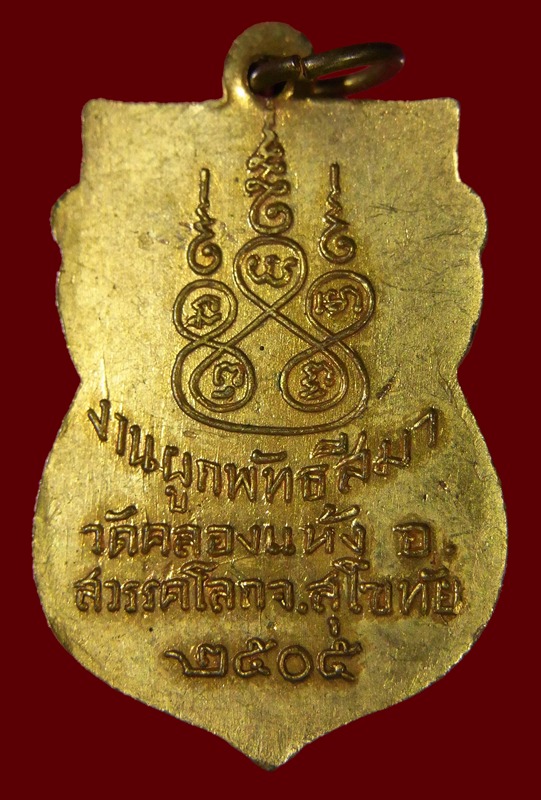 งานผูกพัทธสีมา
วัดคลองแห้ง อ.
สวรรคโลกจ.สุโขทัย
๒๕๐๕